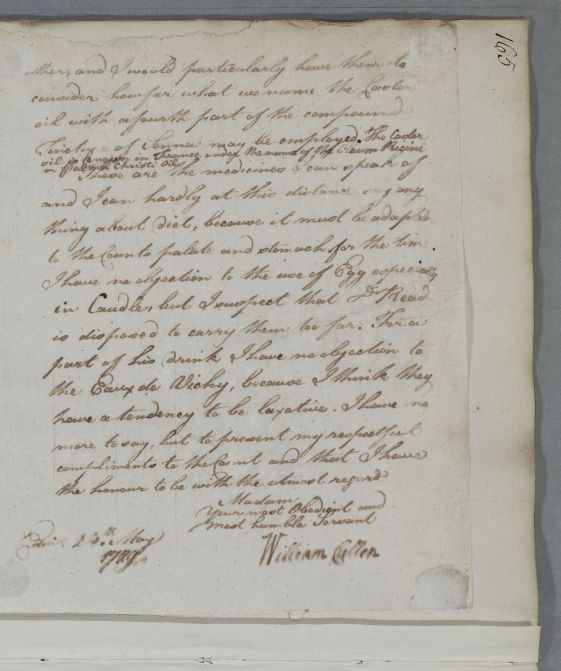 165
ther, and I would particularly have them to
consider how far what we name the Castor
oil with a fourth part of the compound
Tincture of Senna may be employed. The Castor
oil is known in France under the name of the Oleum Ricini
or Palma Christi oil
These are the medicines I can speak of
and I can hardly at this distance say any
thing about diet, because it must be adapted
to the Counts palate and stomach for the time.
I have no objection to the use of Egg especially
in Caudle, but I suspect that Dr Read
is disposed to carry them too far. For a
part of his drink I have no objection to
the Eaux de Vichy, because I think they
have a tendency to be laxative. I have no
more to say, but to present my respectful
compliments to the Count and that I have
the honour to be with the utmost regard
Madam
Your most Obedient and
most humble Servant
Edinr. 24th May
1789
William Cullen